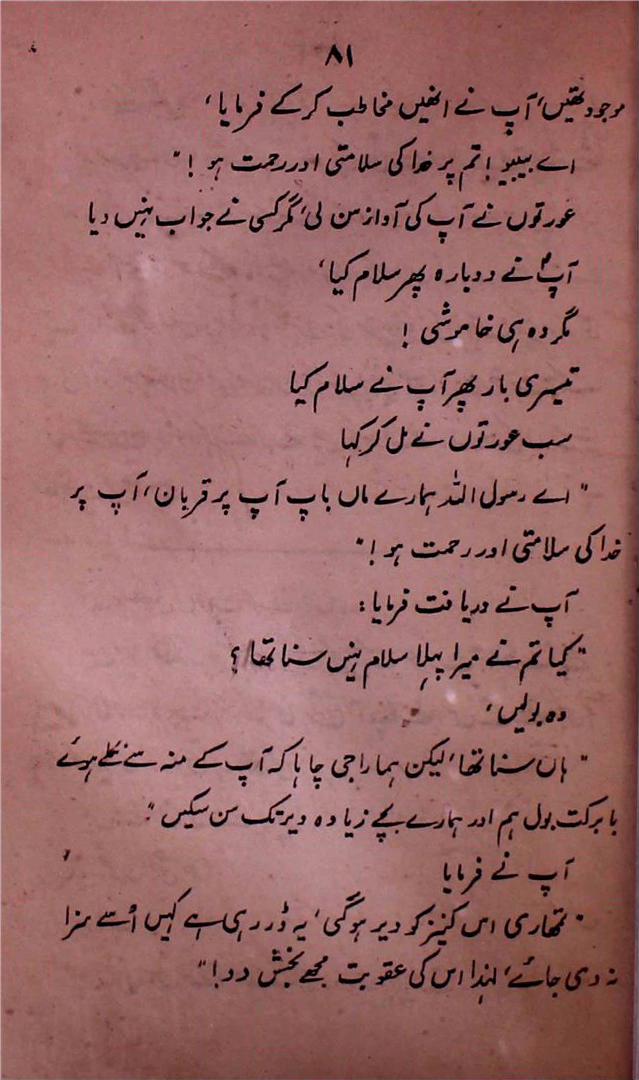 ۸۱
موجود تھیں، آپ نے انھیں مخاطب کر کے فرمایا،
اے بیبیو! تم پر خدا کی سلامتی اور رحمت ہو!"
عورتوں نے آپ کی آواز سن لی، مگر کسی نے جواب نہیں دیا
آپؐ نے دوبارہ پھر سلام کیا،
مگر وہ ہی خاموشی!
تیسری بار پھر آپ نے سلام کیا
سب عورتوں نے مل کر کہا
"اے رسول اللہ ہمارے ماں باپ آپ پر قربان، آپ پر
خدا کی سلامتی اور رحمت ہو!"
آپ نے دریافت فرمایا:
"کیا تم نے میرا پہلا سلام نہیں سنا تھا؟
وہ بولیں،
"ہاں سنا تھا، لیکن ہمارا جی چاہا کہ آپ کے منہ سے نکلے ہوئے
بابرکت بول ہم اور ہمارے بچے زیادہ دیر تک سن سکیں"۔
آپ نے فرمایا
"تمھاری اس کنیز کو دیر ہو گئی، یہ ڈر رہی ہے کہیں اُسے سزا
نہ دی جائے، لہٰذا اس کی عقوبت مجھے بخش دو!"